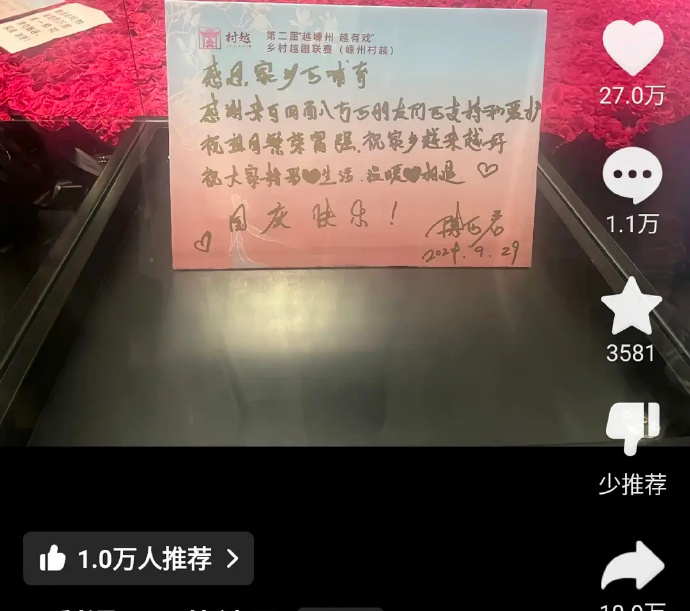 村越
第二届"越嵊州 越有戏"
乡村越剧联赛（嵊州村越）
感恩家乡的哺育
感谢来自四面八方的朋友们的支持和爱护
祝祖国繁荣富强，祝家乡越来越好
祝大家持爱生活，温暖相遇
国庆快乐！
2024.9.29
27.0万
1.1万
3581
少推荐
1.0万人推荐